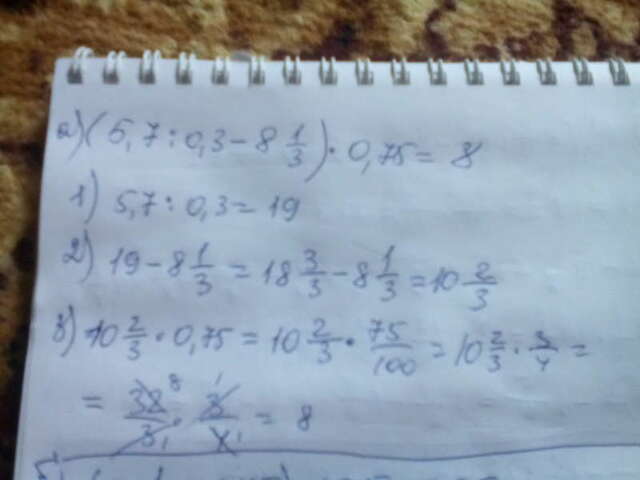 а) (5,7 : 0,3 - 8 1/3) · 0,75 = 8
1) 5,7 : 0,3 = 19
2) 19 - 8 1/3 = 18 3/3 - 8 1/3 = 10 2/3
3) 10 2/3 · 0,75 = 10 2/3 · 75/100 = 10 2/3 · 3/4 =
= 32 8/3 1 · 3 1/4 1 = 8